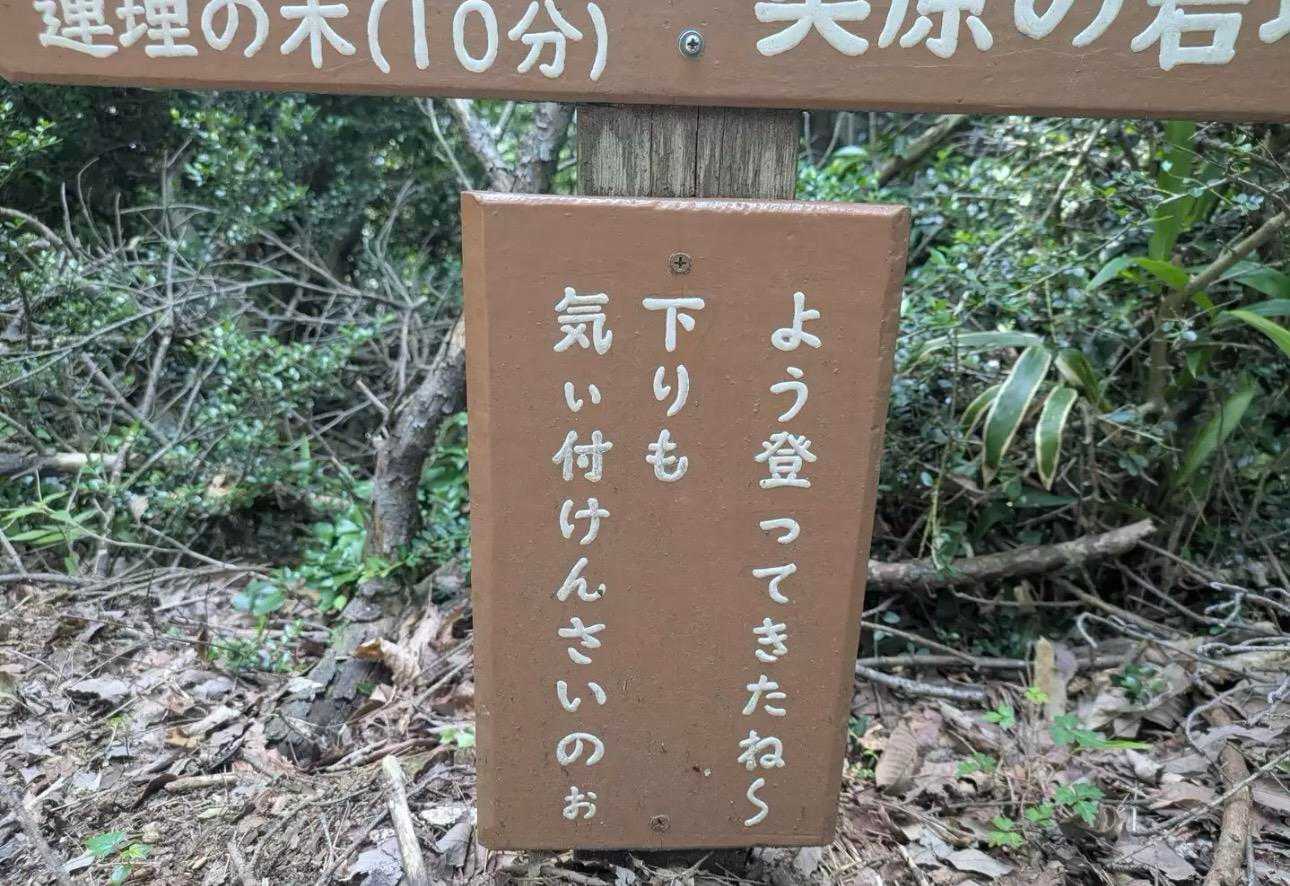 連理の木(10分)
美原の岩
よう登ってきたね〜
下りも
気ぃ付けんさいのぉ